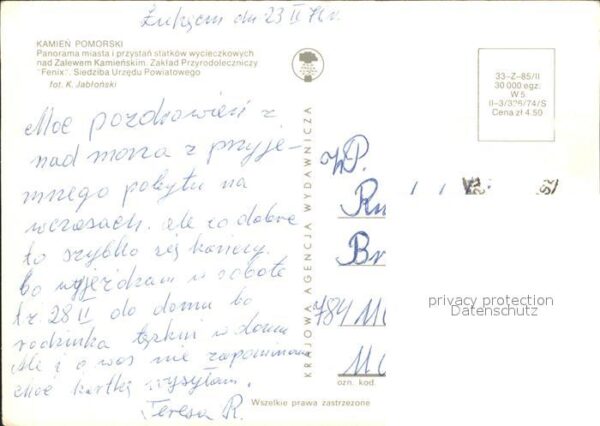 dn 23 II 76 r.
KAMIEŃ POMORSKI
Panorama miasta i przystań statków wycieczkowych
nad Zalewem Kamieńskim. Zakład Przyrodoleczniczy
"Fenix". Siedziba Urzędu Powiatowego
fot. K. Jabłoński
33-Z-85/II
30 000 egz.
W 5
II-3/326/74/S
Cena zł 4.50
Moc pozdrowień z
nad morza z przyje-
mnego pobytu na
wczasach. ale co dobre
to szybko się kończy.
bo wyjeżdżam w sobotę
tz. 28 II do domu bo
rodzinka tęskni w domu
Ale i o was nie zapominam
Moc kartkę wysyłam.
Teresa R.
KRAJOWA AGENCJA WYDAWNICZA
WP.
Ru
Br
784
ozn. kod.
Wszelkie prawa zastrzeżone
privacy protection
Datenschutz